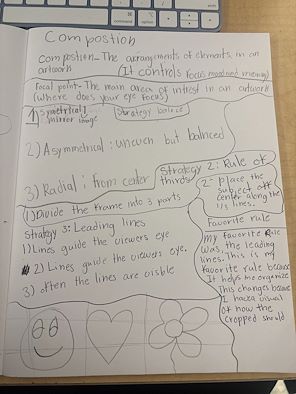 Compostion
Compostion- The arrangements of elements in an
artwork (It controls focus mood and meaning)
Focal point- The main area of intrest in an artwork
(where does your eye focus)
1) Symetrical: Strategy balnce
mirror image
2) Asymmetrical: uneven but balnced
3) Radial: from center
Strategy 2: Rule of
thirds
1) Divide the frame into 3 parts
2- Place the
subject off
center along the
1/3 lines.
Stratagy 3: Leading lines
1) Lines guide the viewers eye
2) Lines guide the viewers eye.
3) often the lines are visble
Favorite rule
My favorite Rule
was the leading
lines. This is my
favorite rule because
It helps me organize
This changes because
I had a visual
of how the
cropped should